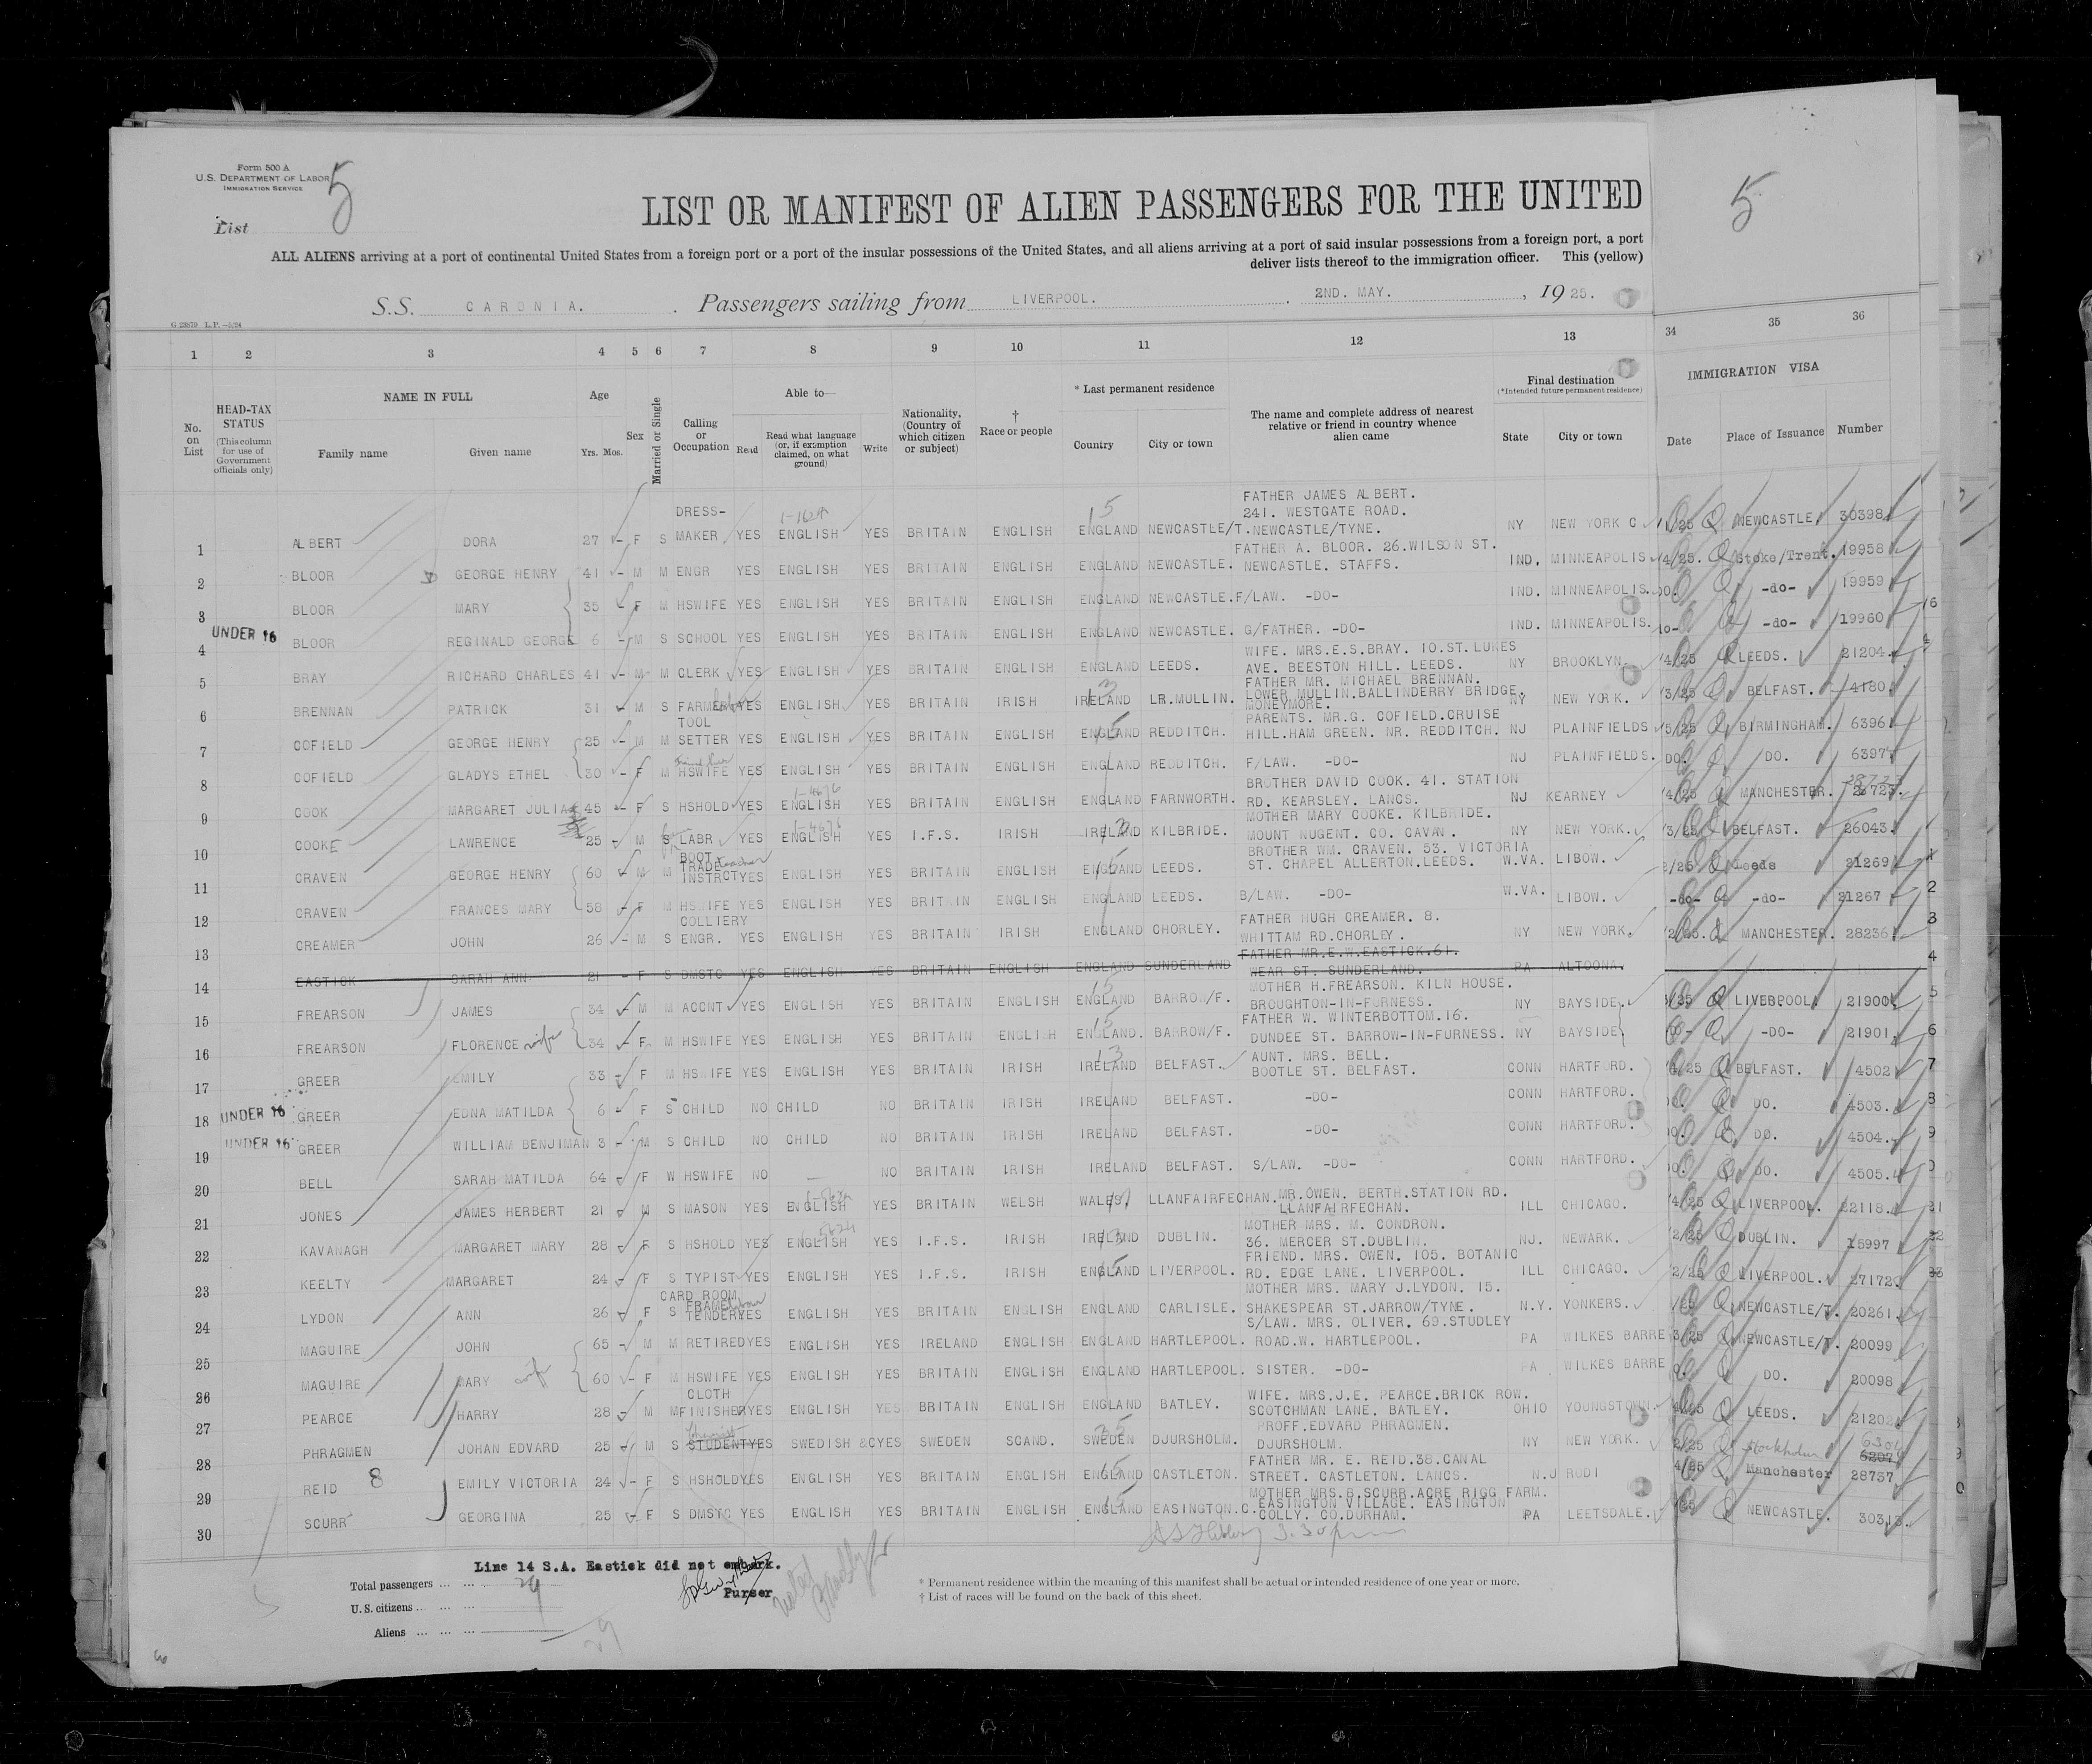 Form 500 A
U.S. DEPARTMENT OF LABOR
IMMIGRATION SERVICE
List 5
5
LIST OR MANIFEST OF ALIEN PASSENGERS FOR THE UNITED
ALL ALIENS arriving at a port of continental United States from a foreign port or a port of the insular possessions of the United States, and all aliens arriving at a port of said insular possessions from a foreign port, a port
deliver lists thereof to the immigration officer. This (yellow)
S.S. CARONIA. Passengers sailing from LIVERPOOL. 2ND. MAY. , 1925.
G 23879 L.P.—5/24
1 2 3 4 5 6 7 8 9 10 11 12 13 34 35 36
No. on List
HEAD-TAX STATUS (This column for use of Government officials only)
NAME IN FULL Family name Given name
Age Yrs. Mos.
Sex
Married or Single
Calling or Occupation
Able to— Read Read what language (or, if exemption claimed, on what ground) Write
Nationality, (Country of which citizen or subject)
† Race or people
* Last permanent residence Country City or town
The name and complete address of nearest relative or friend in country whence alien came
Final destination (*Intended future permanent residence) State City or town
IMMIGRATION VISA Date Place of Issuance Number
1 ALBERT DORA 27 - F S DRESS-MAKER YES ENGLISH YES BRITAIN ENGLISH ENGLAND NEWCASTLE/T. FATHER JAMES ALBERT. 241. WESTGATE ROAD. NEWCASTLE/TYNE. NY NEW YORK C /25 NEWCASTLE. 30398
2 BLOOR GEORGE HENRY 41 - M M ENGR YES ENGLISH YES BRITAIN ENGLISH ENGLAND NEWCASTLE. FATHER A. BLOOR. 26.WILSON ST. NEWCASTLE. STAFFS. IND. MINNEAPOLIS 4/25. Stoke/Trent. 19958
3 BLOOR MARY 35 - F M HSWIFE YES ENGLISH YES BRITAIN ENGLISH ENGLAND NEWCASTLE. F/LAW. -DO- IND. MINNEAPOLIS. DO. -do- 19959
UNDER 16
4 BLOOR REGINALD GEORGE 6 - M S SCHOOL YES ENGLISH YES BRITAIN ENGLISH ENGLAND NEWCASTLE. G/FATHER. -DO- IND. MINNEAPOLIS. -do- 19960
5 BRAY RICHARD CHARLES 41 - M M CLERK YES ENGLISH YES BRITAIN ENGLISH ENGLAND LEEDS. WIFE. MRS.E.S.BRAY. 10.ST.LUKES AVE. BEESTON HILL. LEEDS. NY BROOKLYN. 4/25 LEEDS. 21204
6 BRENNAN PATRICK 31 - M S FARMER YES ENGLISH YES BRITAIN IRISH IRELAND LR.MULLIN. FATHER MR. MICHAEL BRENNAN. LOWER MULLIN.BALLINDERRY BRIDGE. MONEYMORE. NY NEW YORK. 3/25 BELFAST. 4180
7 COFIELD GEORGE HENRY 25 - M M TOOL SETTER YES ENGLISH YES BRITAIN ENGLISH ENGLAND REDDITCH. PARENTS. MR.G. COFIELD.CRUISE HILL.HAM GREEN. NR. REDDITCH. NJ PLAINFIELDS 5/25 BIRMINGHAM. 6396
8 COFIELD GLADYS ETHEL 30 - F M HSWIFE YES ENGLISH YES BRITAIN ENGLISH ENGLAND REDDITCH. F/LAW. -DO- NJ PLAINFIELDS. DO. DO. 6397
9 COOK MARGARET JULIA 45 - F S HSHOLD YES ENGLISH YES BRITAIN ENGLISH ENGLAND FARNWORTH. BROTHER DAVID COOK. 41. STATION RD. KEARSLEY. LANCS. NJ KEARNEY 4/25 MANCHESTER. 28723
10 COOKE LAWRENCE 25 - M S LABR YES ENGLISH YES I.F.S. IRISH IRELAND KILBRIDE. MOTHER MARY COOKE. KILBRIDE. MOUNT NUGENT. CO. CAVAN. NY NEW YORK. 3/25 BELFAST. 26043
11 CRAVEN GEORGE HENRY 60 - M M BOOT TRADE INSTRCT teacher YES ENGLISH YES BRITAIN ENGLISH ENGLAND LEEDS. BROTHER WM. CRAVEN. 53. VICTORIA ST. CHAPEL ALLERTON.LEEDS. W.VA. LIBOW. 2/25 Leeds 21269
12 CRAVEN FRANCES MARY 58 - F M HSWIFE YES ENGLISH YES BRITAIN ENGLISH ENGLAND LEEDS. B/LAW. -DO- W.VA. LIBOW. -do- -do- 21267
13 CREAMER JOHN 26 - M S COLLIERY ENGR. YES ENGLISH YES BRITAIN IRISH ENGLAND CHORLEY. FATHER HUGH CREAMER. 8. WHITTAM RD.CHORLEY. NY NEW YORK. MANCHESTER. 28236
14 EASTICK SARAH ANN 21 - F S DMSTC YES ENGLISH YES BRITAIN ENGLISH ENGLAND SUNDERLAND FATHER MR.E.W.EASTICK.61. WEAR ST. SUNDERLAND. PA ALTOONA.
15 FREARSON JAMES 34 - M M ACCNT YES ENGLISH YES BRITAIN ENGLISH ENGLAND BARROW/F. MOTHER H.FREARSON. KILN HOUSE. BROUGHTON-IN-FURNESS. NY BAYSIDE. /25 LIVERPOOL. 21900
16 FREARSON FLORENCE wife 34 - F M HSWIFE YES ENGLISH YES BRITAIN ENGLISH ENGLAND. BARROW/F. FATHER W. WINTERBOTTOM.16. DUNDEE ST. BARROW-IN-FURNESS. NY BAYSIDE -DO- 21901
17 GREER EMILY 33 - F M HSWIFE YES ENGLISH YES BRITAIN IRISH IRELAND BELFAST. AUNT. MRS. BELL. BOOTLE ST. BELFAST. CONN HARTFORD. 4/25 BELFAST. 4502
UNDER 16
18 GREER EDNA MATILDA 6 F S CHILD NO CHILD NO BRITAIN IRISH IRELAND BELFAST. -DO- CONN HARTFORD. DO. DO. 4503.
UNDER 16
19 GREER WILLIAM BENJIMAN 3 - M S CHILD NO CHILD NO BRITAIN IRISH IRELAND BELFAST. -DO- CONN HARTFORD. DO. DO. 4504.
20 BELL SARAH MATILDA 64 F W HSWIFE NO — NO BRITAIN IRISH IRELAND BELFAST. S/LAW. -DO- CONN HARTFORD. DO. DO. 4505.
21 JONES JAMES HERBERT 21 M S MASON YES ENGLISH YES BRITAIN WELSH WALES LLANFAIRFECHAN. MR.OWEN. BERTH.STATION RD. LLANFAIRFECHAN. ILL CHICAGO. 4/25 LIVERPOOL. 22118.
22 KAVANAGH MARGARET MARY 28 F S HSHOLD YES ENGLISH YES I.F.S. IRISH IRELAND DUBLIN. MOTHER MRS. M. CONDRON. 36. MERCER ST.DUBLIN. NJ. NEWARK. 2/25 DUBLIN. 15997
23 KEELTY MARGARET 24 F S TYPIST YES ENGLISH YES I.F.S. IRISH ENGLAND LIVERPOOL. FRIEND. MRS. OWEN. 105. BOTANIC RD. EDGE LANE. LIVERPOOL. ILL CHICAGO. 2/25 LIVERPOOL. 27172
24 LYDON ANN 26 F S CARD ROOM FRAME TENDER YES ENGLISH YES BRITAIN ENGLISH ENGLAND CARLISLE. MOTHER MRS. MARY J.LYDON. 15. SHAKESPEAR ST.JARROW/TYNE. N.Y. YONKERS. /25 NEWCASTLE/T. 20261
25 MAGUIRE JOHN 65 - M M RETIRED YES ENGLISH YES IRELAND ENGLISH ENGLAND HARTLEPOOL. S/LAW. MRS. OLIVER. 69.STUDLEY ROAD.W. HARTLEPOOL. PA WILKES BARRE 3/25 NEWCASTLE/T. 20099
26 MAGUIRE MARY wife 60 - F M HSWIFE YES ENGLISH YES BRITAIN ENGLISH ENGLAND HARTLEPOOL. SISTER. -DO- PA WILKES BARRE DO. 20098
27 PEARCE HARRY 28 M M CLOTH FINISHER YES ENGLISH YES BRITAIN ENGLISH ENGLAND BATLEY. WIFE. MRS.J.E. PEARCE.BRICK ROW. SCOTCHMAN LANE. BATLEY. OHIO YOUNGSTOWN. 4/25 LEEDS. 21202
28 PHRAGMEN JOHAN EDVARD 25 M S STUDENT YES SWEDISH &C YES SWEDEN SCAND. SWEDEN DJURSHOLM. PROFF.EDVARD PHRAGMEN. DJURSHOLM. NY NEW YORK. 2/25 Stockholm
29 REID 8 EMILY VICTORIA 24 - F S HSHOLD YES ENGLISH YES BRITAIN ENGLISH ENGLAND CASTLETON. FATHER MR. E. REID.38.CANAL STREET. CASTLETON. LANCS. N.J RODI 4/25 Manchester 28737
30 SCURR GEORGINA 25 - F S DMSTC YES ENGLISH YES BRITAIN ENGLISH ENGLAND EASINGTON.C. MOTHER MRS.B.SCURR.ACRE RIGG FARM. EASINGTON VILLAGE. EASINGTON COLLY. CO.DURHAM. PA LEETSDALE. /25 NEWCASTLE. 30313
3.30 pm
Line 14 S.A. Eastick did not embark.
Purser
Total passengers ... ... 29
U.S. citizens ... ... ...
Aliens ... ... ... 29
* Permanent residence within the meaning of this manifest shall be actual or intended residence of one year or more.
† List of races will be found on the back of this sheet.